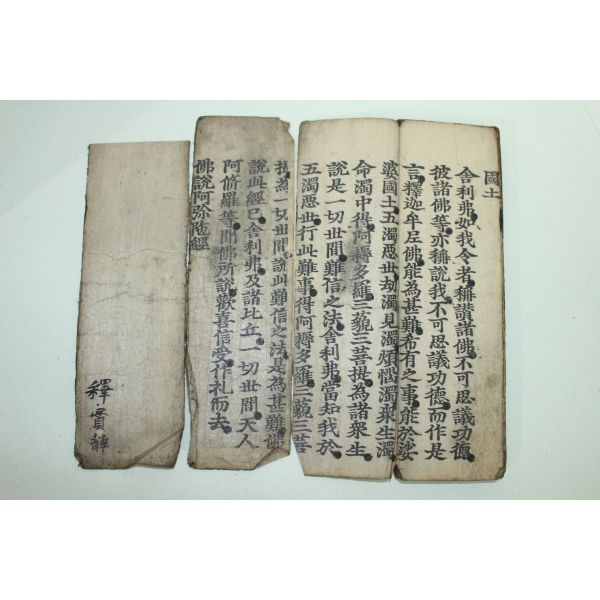 國土
舍利弗如我今者稱讚諸佛不可思議功德
彼諸佛等亦稱說我不可思議功德而作是
言釋迦牟尼佛能為甚難希有之事能於娑
婆國土五濁惡世劫濁見濁煩惱濁衆生濁
命濁中得阿耨多羅三藐三菩提為諸衆生
說是一切世間難信之法舍利弗當知我於
五濁惡世行此難事得阿耨多羅三藐三菩
提為一切世間說此難信之法是為甚難佛
說此經已舍利弗及諸比丘一切世間天人
阿脩羅等聞佛所說歡喜信受作礼而去
佛說阿弥陁經
釋